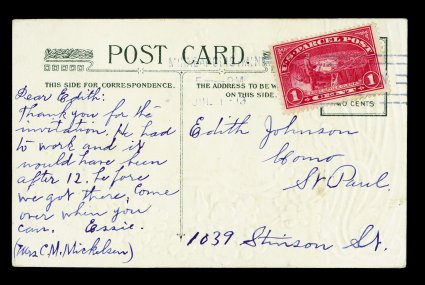 POST CARD
THIS SIDE FOR CORRESPONDENCE.
THE ADDRESS TO BE
ON THIS SIDE.
U.S. PARCEL POST
1 CENT 1
CENTS
Dear Edith:
Thank you for the
invitation. He had
to work and it
would have been
after 12. before
we got there, Come
over when you
can. Essie.
(Mrs C.M. Mickelsen)
Edith Johnson
Como
St Paul.
1039 Stinson St.